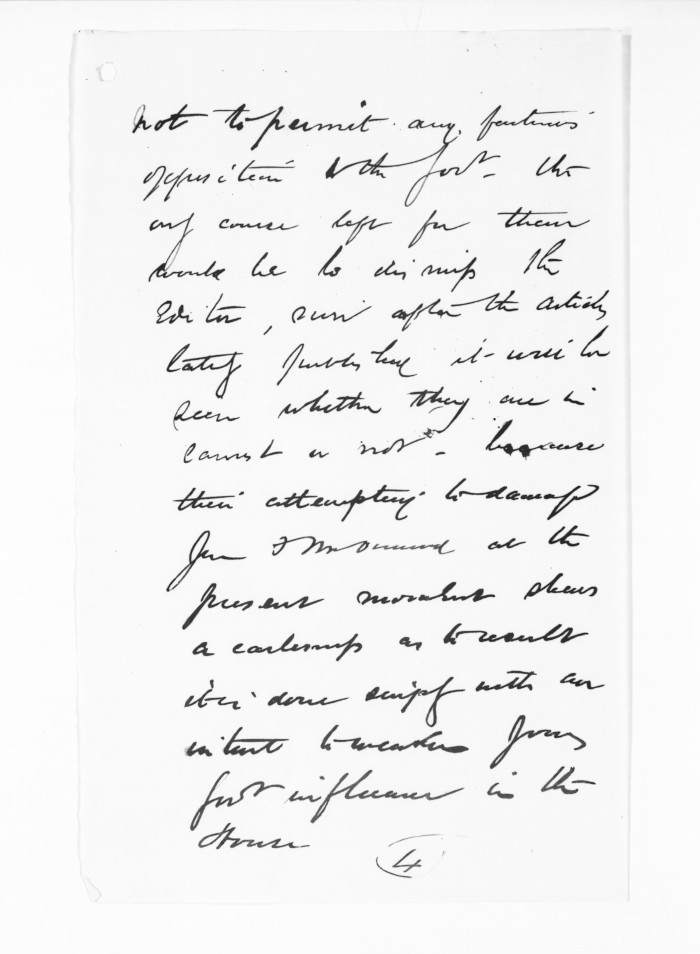 not to permit any factious
opposition to the Govt - the
only course left for them
would be to dismiss the
Editor, even after the articles
lately published it will be
seen whether they are in
earnest or not - because
their attempting to damage
the
present moment shews
a carelessness as to result
it is done simply with an
intent to weaken your
Govt influence in the
House
4